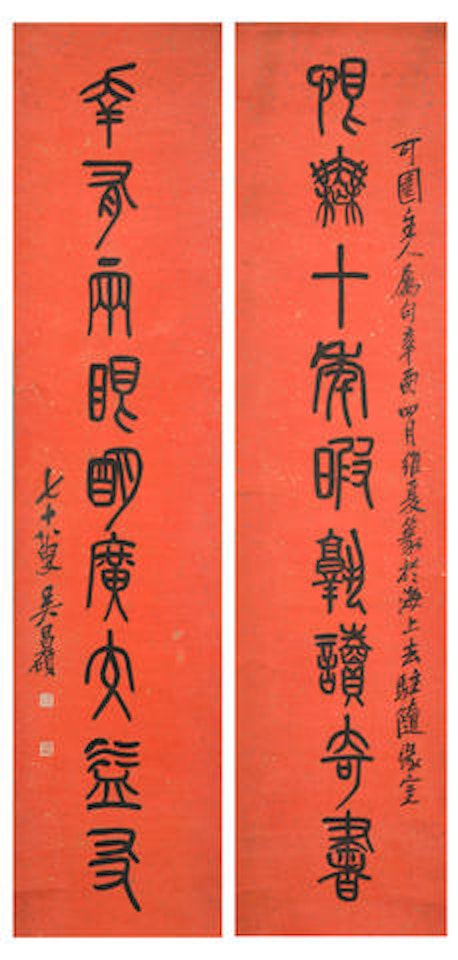 可園主人屬句辛酉四月維夏篆於海上去駐隨緣室
恨無十年暇孰讀奇書
幸有兩眼明廣交益友
七十八叟吳昌碩